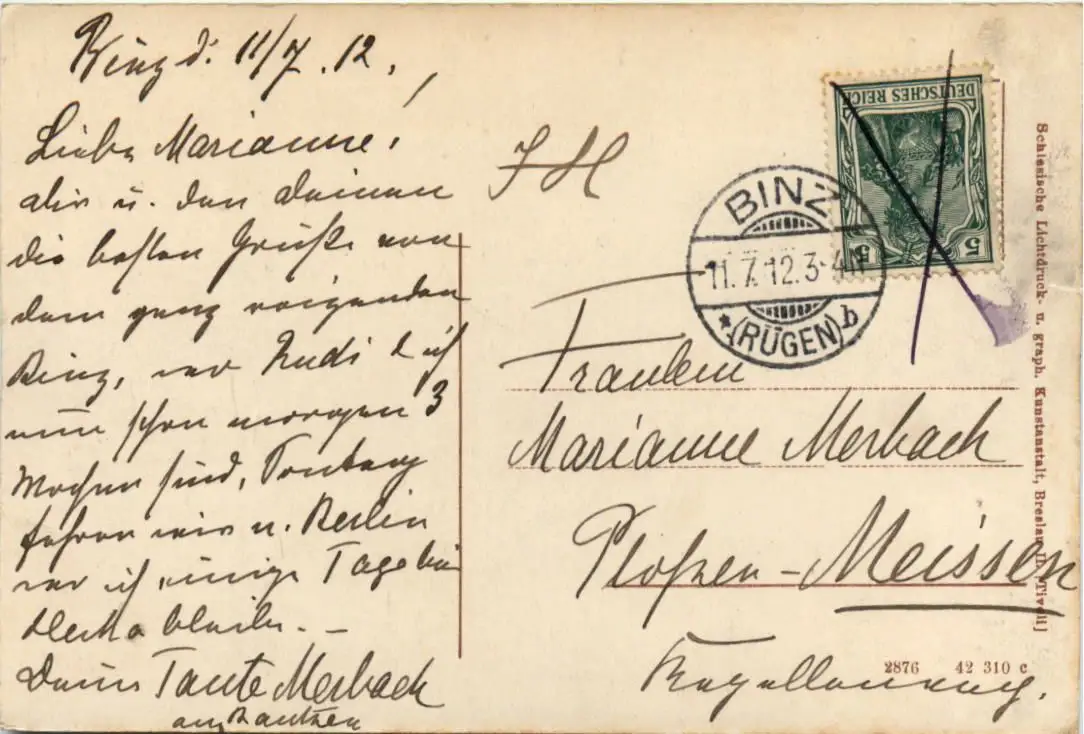 Binz d. 11/7. 12.,
Liebe Marianne!
dir u. den deinen
die besten Grüße von
dem ganz reizenden
Binz, wo Rudi & ich
nun schon morgen 3
Wochen sind, Sontag
fahren wir n. Berlin
wo ich einige Tage bei
bleibe. –
Deine Tante Merbach
aus Bautzen
DEUTSCHES REICH
5 5
BINZ
11.7.12.3-4N
*(RÜGEN) b
Fräulein
Marianne Merbach
Meissen
2876 42 310 c
Schlesische Lichtdruck- u. graph. Kunstanstalt, Breslau II. [Tivoli]